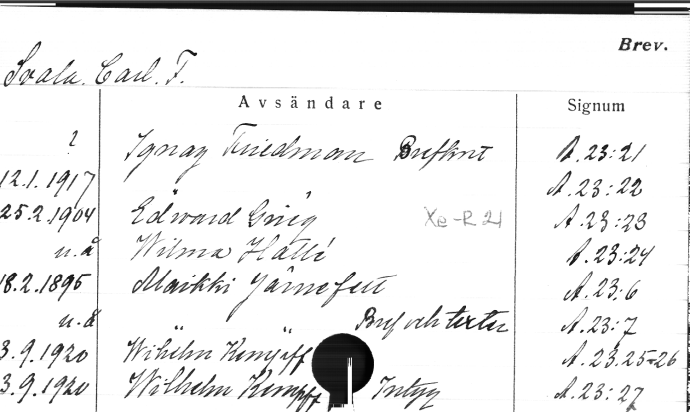 Brev.
Svala. Carl. F.
Avsändare Signum
? Ignaz Friedman Brefkort A.23:21
12.1.1917 A.23:22
25.2.1904 Edward Grieg Xe-R 21 A.23:23
u.å Wilma Hallé A.23:24
18.2.1895 Maikki Järnefelt A.23:6
u.å " Bref och texter A.23:7
3.9.1920 Wilhelm Kempff A.23.25-26
3.9.1920 Wilhelm Kempff Intyg A.23:27